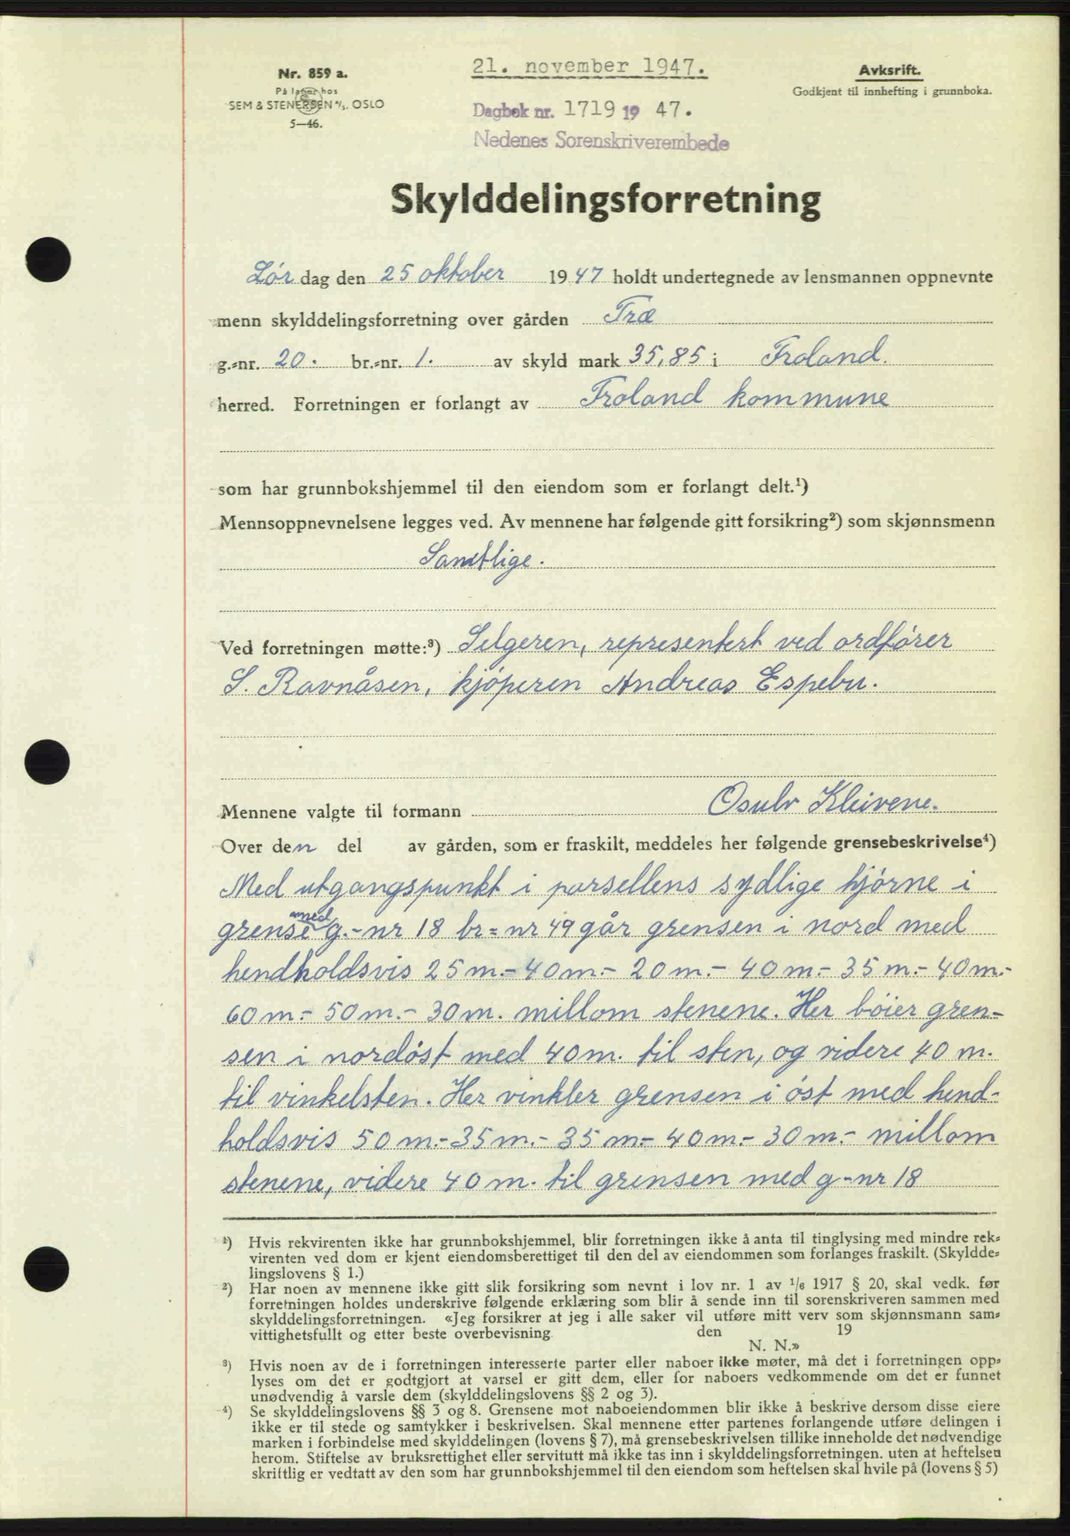 Nr. 859 a.
På lager hos
SEM & STENERSEN A/S. OSLO
5—46.
21. november 1947.
Dagbok nr. 1719 19 47.
Nedenes Sorenskriverembede
Avskrift.
Godkjent til innhefting i grunnboka.
Skylddelingsforretning
Lør dag den 25 oktober 1947 holdt undertegnede av lensmannen oppnevnte
menn skylddelingsforretning over gården Træ
g.-nr. 20. br.-nr. 1. av skyld mark 35,85 i Froland.
herred. Forretningen er forlangt av Froland kommune
som har grunnbokshjemmel til den eiendom som er forlangt delt.¹)
Mennsoppnevnelsene legges ved. Av mennene har følgende gitt forsikring²) som skjønnsmenn
Samtlige.
Ved forretningen møtte:³) Selgeren, representert ved ordfører
S. Ravnåsen, kjøperen Andreas Espebu.
Mennene valgte til formann Osulv Kleivene.
Over den del av gården, som er fraskilt, meddeles her følgende grensebeskrivelse⁴)
Med utgangspunkt i parsellens sydlige hjørne i
grense med g.-nr 18 br=nr 49 går grensen i nord med
hendholdsvis 25 m.- 40 m.- 20 m.- 40 m.- 35 m.- 40 m.-
60 m.- 50 m.- 30 m. millom stenene. Her bøier gren-
sen i nordøst med 40 m. til sten, og videre 40 m.
til vinkelsten. Her vinkler grensen i øst med hend-
holdsvis 50 m.- 35 m.- 35 m.- 40 m.- 30 m.- millom
stenene, videre 40 m. til grensen med g-nr 18
¹) Hvis rekvirenten ikke har grunnbokshjemmel, blir forretningen ikke å anta til tinglysing med mindre rek-
virenten ved dom er kjent eiendomsberettiget til den del av eiendommen som forlanges fraskilt. (Skyldde-
lingslovens § 1.)
²) Har noen av mennene ikke gitt slik forsikring som nevnt i lov nr. 1 av 1/6 1917 § 20, skal vedk. før
forretningen holdes underskrive følgende erklæring som blir å sende inn til sorenskriveren sammen med
skylddelingsforretningen. «Jeg forsikrer at jeg i alle saker vil utføre mitt verv som skjønnsmann sam-
vittighetsfullt og etter beste overbevisning den 19
N. N.»
³) Hvis noen av de i forretningen interesserte parter eller naboer ikke møter, må det i forretningen opp-
lyses om det er godtgjort at varsel er gitt dem, eller for naboers vedkommende om det er funnet
unødvendig å varsle dem (skylddelingslovens §§ 2 og 3).
⁴) Se skylddelingslovens §§ 3 og 8. Grensene mot naboeiendommen blir ikke å beskrive dersom disse eiere
ikke er til stede og samtykker i beskrivelsen. Skal mennene etter partenes forlangende utføre delingen i
marken i forbindelse med skylddelingen (lovens § 7), må grensebeskrivelsen tillike inneholde det nødvendige
herom. Stiftelse av bruksrettighet eller servitutt må ikke tas inn i skylddelingsforretningen. uten at heftelsen
skriftlig er vedtatt av den som har grunnbokshjemmel til den eiendom som heftelsen skal hvile på (lovens § 5)